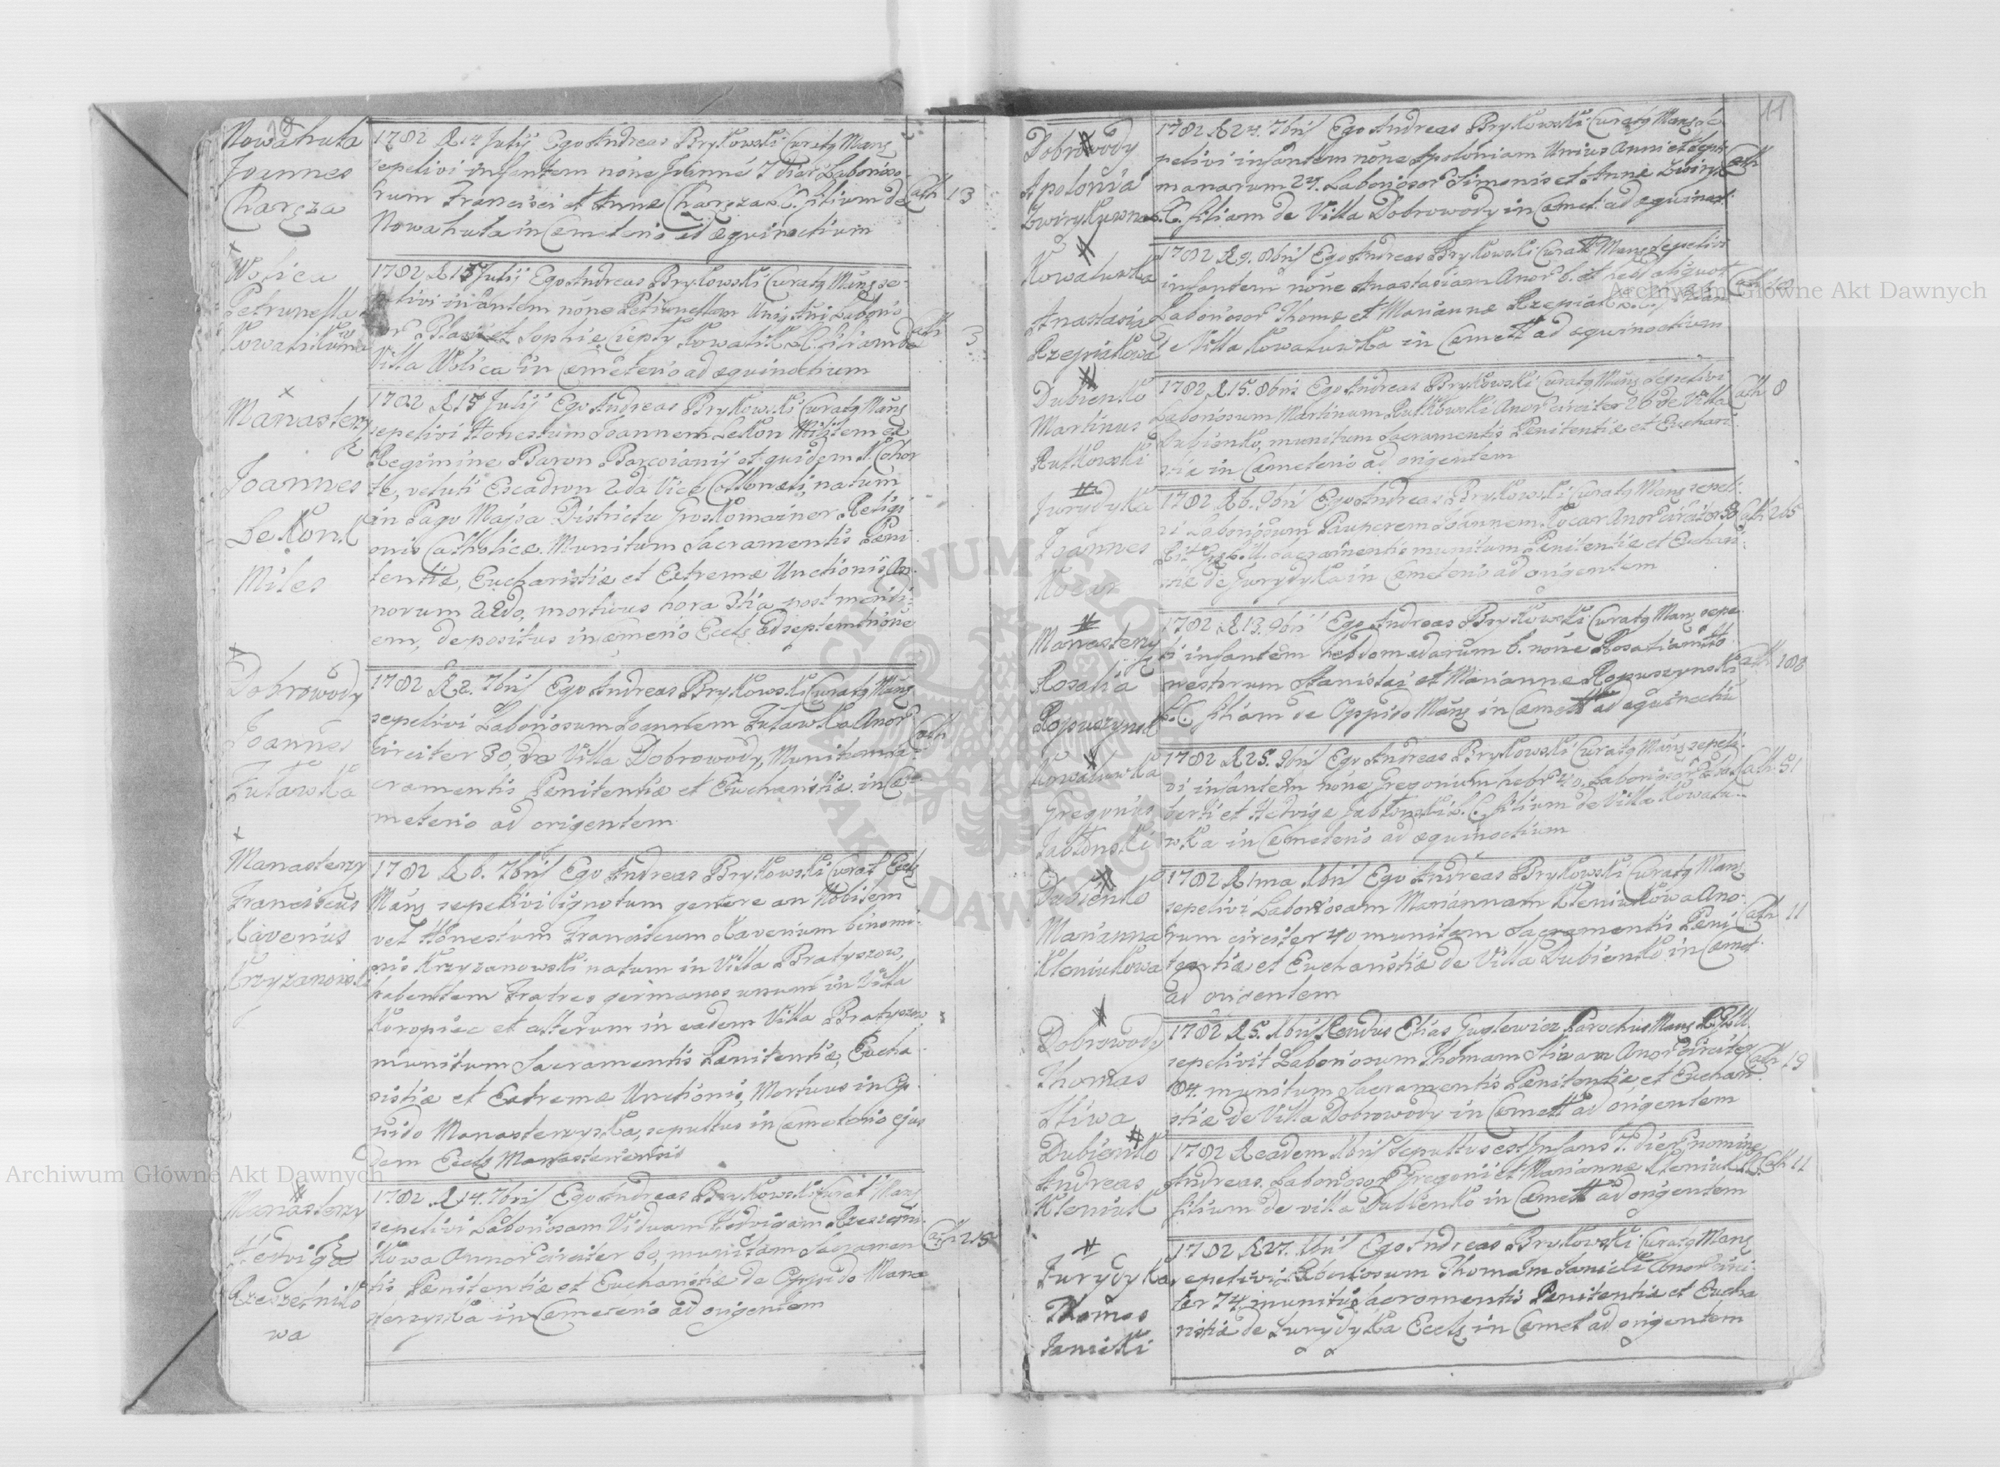 10
Nowahuta
Joannes
Charęza
1782 d. Julij Ego Andreas Brykowski Curatg Mang
sepelivi infantem noīe Joannē 7 diēr Laborioso-
rum Francisci et Annæ Charęza L.C. filium de
Nowahuta in Cæmeterio ad æquinoctium
Cath 13
Wolica
Petrunella
1782 d. 15 Julij Ego Andreas Brykowski Curatg Mang se-
pelivi infantem noīe Petrunellam Unij Añi Laborio
sor Blasii et Sophiæ L.C. filiam de
Villa Wolica in Cæmeterio ad æquinoctium
Cath 3
Manasterz
Joannes
Lekon
Miles
1782 d. 17 Julij Ego Andreas Brykowski Curatg Mang
sepelivi Honestum Joannem Lekon Militem ex
Regimine Baron Barcoianij et quidem Cohor
te, veluti Escadron 2da Vice Collonæli, natum
in Pago Majsa Districtu Religi
onis Catholicæ. Munitum Sacramentis Pæni
tentiæ, Eucharistiæ et Extremæ Unctionis An-
norum 22do, mortuus hora 3tia post meridi
em, depositus in cæmerio Eccls ad septemtrionē
Dobrowody
Joannes
Futawka
1782 d. 2. 7bris Ego Andreas Brykowski Curatg Mang
sepelivi Laboriosum Joannem Futawka Anor
circiter 30, de Villa Dobrowody, Munitum sa-
cramentis Penitentiæ et Eucharistiæ in Cæ-
meterio ad origentem
Cath
Manasterzy
Franciscus
Xaverius
Krzyzanowski
1782 d. 6. 7bris Ego Andreas Brykowski Curat Eccls
Mang sepelivi ignotum genere an Nobilem
vel Honestum Franciscum Xaverium binomi-
nis Krzyzanowski natum in Villa Bratyszow,
habentem Fratres germanos unum in Villa
Koropiec et alterum in eadem Villa Bratyszow
munitum Sacramentis Pænitentiæ, Eucha
ristiæ et Extremæ Unctionis, Mortuus in Op-
pido Manasterzyska, sepultus in Cæmeterio ejus
dem Eccls Manasteriensis
Manasterzy
Hedvigæ
Rzeszetniko
wa
1782. d. 14. 7bris Ego Andreas Brykowski Curat Mang
sepelivi Laboriosam Viduam Hedvigam Rzeszetni-
kowa Annor circiter 60, munitam Sacramen
tis Pænitentiæ et Eucharistiæ de Oppido Mana
sterzyska in Cæmeterio ad origentem
11
Dobrowody
Apolonia
1782 d. 24. 7bris Ego Andreas Brykowski Curatg Mang se
pelivi infantem noīe Apoloniam Unius Anni et septi
manarum 24. Laboriosor Simonis et Annæ
L.C. filiam de Villa Dobrowody in Cæmet. ad æquinoct.
Cath
Kowalowka
Anastasia
Rzepiakowa
1782 d. 9. 8bris Ego Andreas Brykowski Curatg Mang Sepelivi
infantem noīe Anastasiam Anor 6. et hebd aliquot
Laboriosor Thomæ et Mariannæ Rzepiak L.C. filiam
e Villa Kowalowka in Cæmett ad æquinoctium
Cath
Dubienko
Martinus
Rutkowski
1782 d. 15. 8bris Ego Andreas Brykowski Curatg Mang Sepelivi
Laboriosum Martinum Rutkowski Anor circiter 26 de Villa
Dubienko, munitum Sacramentis Penitentiæ et Euchari
stiæ in Cæmeterio ad origentem
Cath 8
Jurydyka
Joannes
Kocar
1782 d. 6. 9bris Ego Andreas Brykowski Curatg Mang sepeli-
vi Laboriosum Pauperem Joannem Kocar Anor circiter 50
Sacramentis munitum Penitentiæ et Euchari
stiæ de Jurydyka in Cæmeterio ad origentem
Cath 265
Manasterzy
Rosalia
Ropuszynska
1782 d. 13. 9bris Ego Andreas Brykowski Curatg Mang sepe-
li infantem hebdomadarum 6. noīe Rosaliam
nestorum Stanislai et Mariannæ Ropuszynski
L.C. filiam de Oppido Mang in Cæmett ad æquinoctiū
Cath 188
Kowalowka
Gregorius
Jabłonski
1782 d. 25. 9bris Ego Andreas Brykowski Curatg Mang sepeli-
vi infantem noīe Gregorium hebr 40. Laboriosor Adal
berti et Hedvigæ Jabłonski L.C. filium de Villa Kowalo-
wka in Cæmeterio ad æquinoctium
Cath 51
Dubienko
Marianna
Kleniukowa
1782 d. 1ma Xbris Ego Andreas Brykowski Curatg Manq
sepelivi Laboriosam Mariannam Kleniukowa Ano-
rum circiter 40 munitam Sacramentis Peni
tentiæ et Eucharistiæ de Villa Dubienko in Cæmet
ad origentem
Cath 11
Dobrowody
Thomas
Sliwa
1782 d. 5. Xbris Rendus Elias Guglewicz Parochus Mang
sepelivit Laboriosum Thomam Sliwam Anor circiter
84. munitum Sacramentis Penitentiæ et Euchari
stiæ de Villa Dobrowody in Cæmett ad origentem
Cath 19
Dubienko
Andreas
Kleniuk
1782 d eadem Xbris sepultus est Infans 7. dier nomine
Andreas. Laboriosor Gregorii et Mariannæ Kleniuk L.C.
filium de villa Dubienko in Cæmett ad origentem
Cath 11
Jurydyka
Thomas
Janicki
1782 d. 27. Xbris Ego Andreas Brykowski Curatg Manq
sepelivi Laboriosum Thomam Janicki Anor circi
ter 74, munitus sacramentis Penitentiæ et Eucha
ristiæ de Jurydyka Eccls in Cæmet ad origentem
Archiwum Główne Akt Dawnych
Archiwum Główne Akt Dawnych
ARCHIWUM GŁÓWNE AKT DAWNYCH